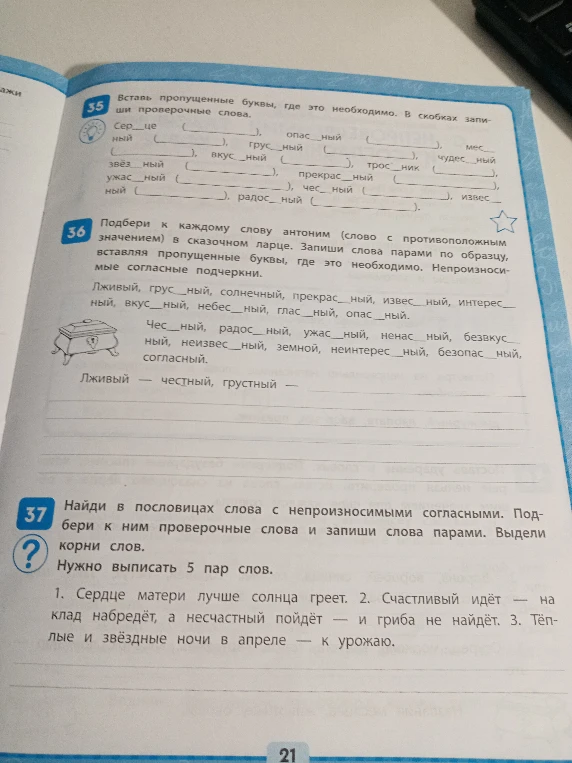 ажи
35 Вставь пропущенные буквы, где это необходимо. В скобках запи-
ши проверочные слова.
Сер__це (__________), опас__ный (__________), мес__
ный (__________), грус__ный (__________), чудес__ный
(__________), вкус__ный (__________), трос__ник (__________),
звёз__ный (__________), прекрас__ный (__________),
ужас__ный (__________), чес__ный (__________), извес__
ный (__________), радос__ный (__________).
36 Подбери к каждому слову антоним (слово с противоположным
значением) в сказочном ларце. Запиши слова парами по образцу,
вставляя пропущенные буквы, где это необходимо. Непроизноси-
мые согласные подчеркни.
Лживый, грус__ный, солнечный, прекрас__ный, извес__ный, интерес__
ный, вкус__ный, небес__ный, глас__ный, опас__ный.
Чес__ный, радос__ный, ужас__ный, ненас__ный, безвкус__
ный, неизвес__ный, земной, неинтерес__ный, безопас__ный,
согласный.
Лживый — честный, грустный —
37 Найди в пословицах слова с непроизносимыми согласными. Под-
бери к ним проверочные слова и запиши слова парами. Выдели
? корни слов.
Нужно выписать 5 пар слов.
1. Сердце матери лучше солнца греет. 2. Счастливый идёт — на
клад набредёт, а несчастный пойдёт — и гриба не найдёт. 3. Тёп-
лые и звёздные ночи в апреле — к урожаю.
21